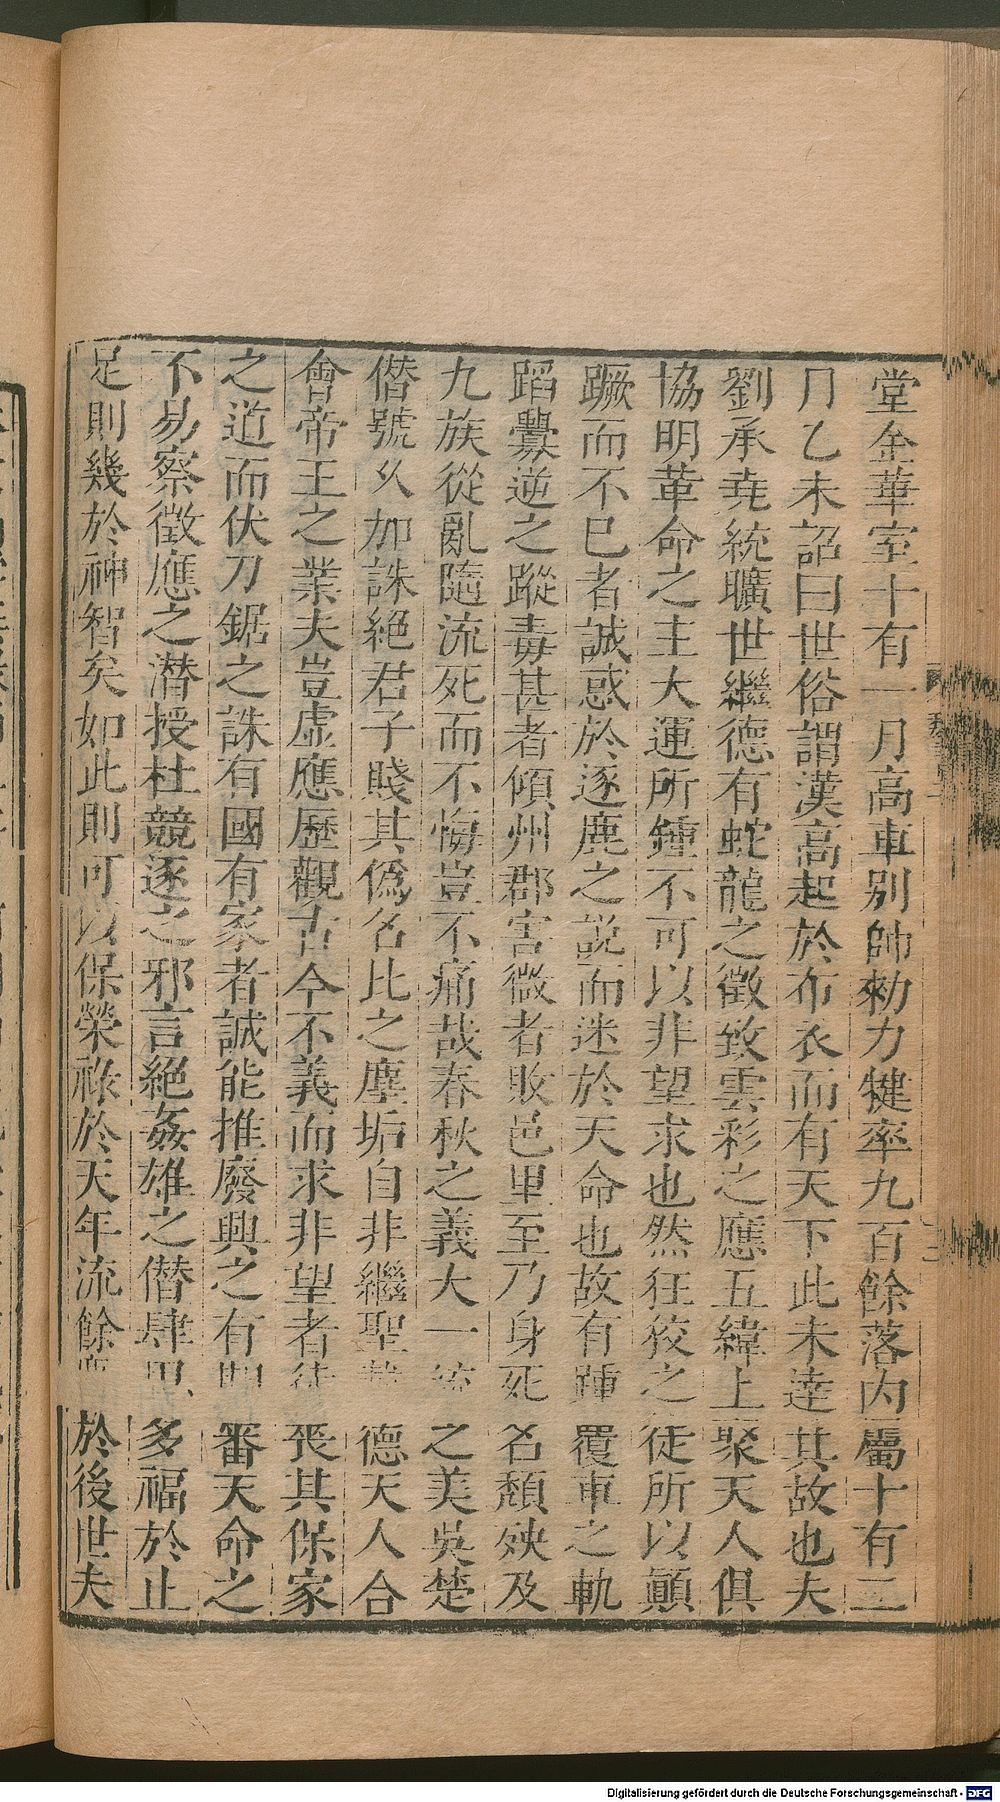 堂金華室十有一月高車别帥勑力犍率九百餘落內屬十有二
月乙未詔曰世俗謂漢高起於布衣而有天下此未達其故也夫
劉承堯統曠世繼德有蛇龍之徵致雲彩之應五緯上聚天人俱
協明革命之主大運所鍾不可以非望求也然狂狡之徒所以顚
蹶而不已者誠惑於逐鹿之說而迷於天命也故有踵覆車之軌
蹈釁逆之蹤毒甚者傾州郡害微者敗邑里至乃身死名頽殃及
九族從亂隨流死而不悔豈不痛哉春秋之義大一統之美吳楚
僭號乆加誅絕君子賤其偽名比之塵垢自非繼聖載德天人合
會帝王之業夫豈虛應歷觀古今不義而求非望者徒喪其保家
之道而伏刀鋸之誅有國有家者誠能推廢興之有期審天命之
不易察徵應之潛授杜競逐之邪言絕姦雄之僭肆思多福於止
足則幾於神智矣如此則可以保榮祿於天年流餘慶於後世夫
Digitalisierung gefördert durch die Deutsche Forschungsgemeinschaft - DFG